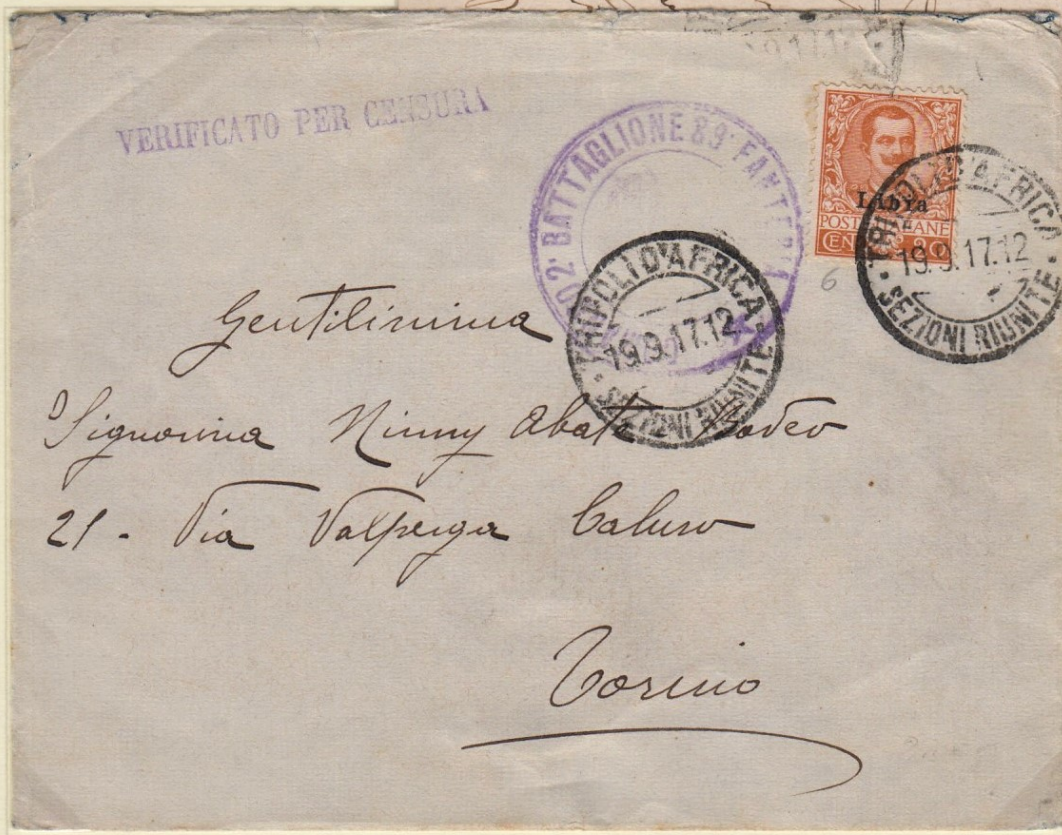 VERIFICATO PER CENSURA
2° BATTAGLIONE 89° FANTERIA
Libya
POSTE ITALIANE
CENT. 20
TRIPOLI D'AFRICA
19.9.17.12
SEZIONI RIUNITE
TRIPOLI D'AFRICA
19.9.17.12
SEZIONI RIUNITE
6
Gentilissima
Signorina Ninny Abate
21 - Via Valperga Caluso
Torino